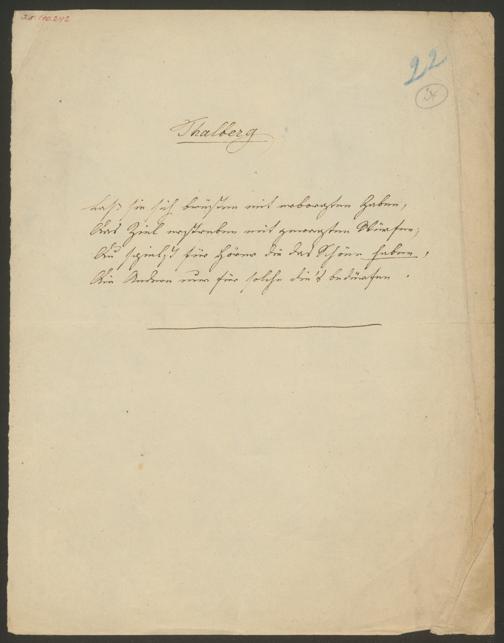 22
Thalberg
Laß sie sich brüsten mit erborgten Gaben,
Das Ziel erstreben mit gewagten Würfen;
Du spielst für Hörer die das Schöne haben,
Die Andern nur für solche die's bedürfen.